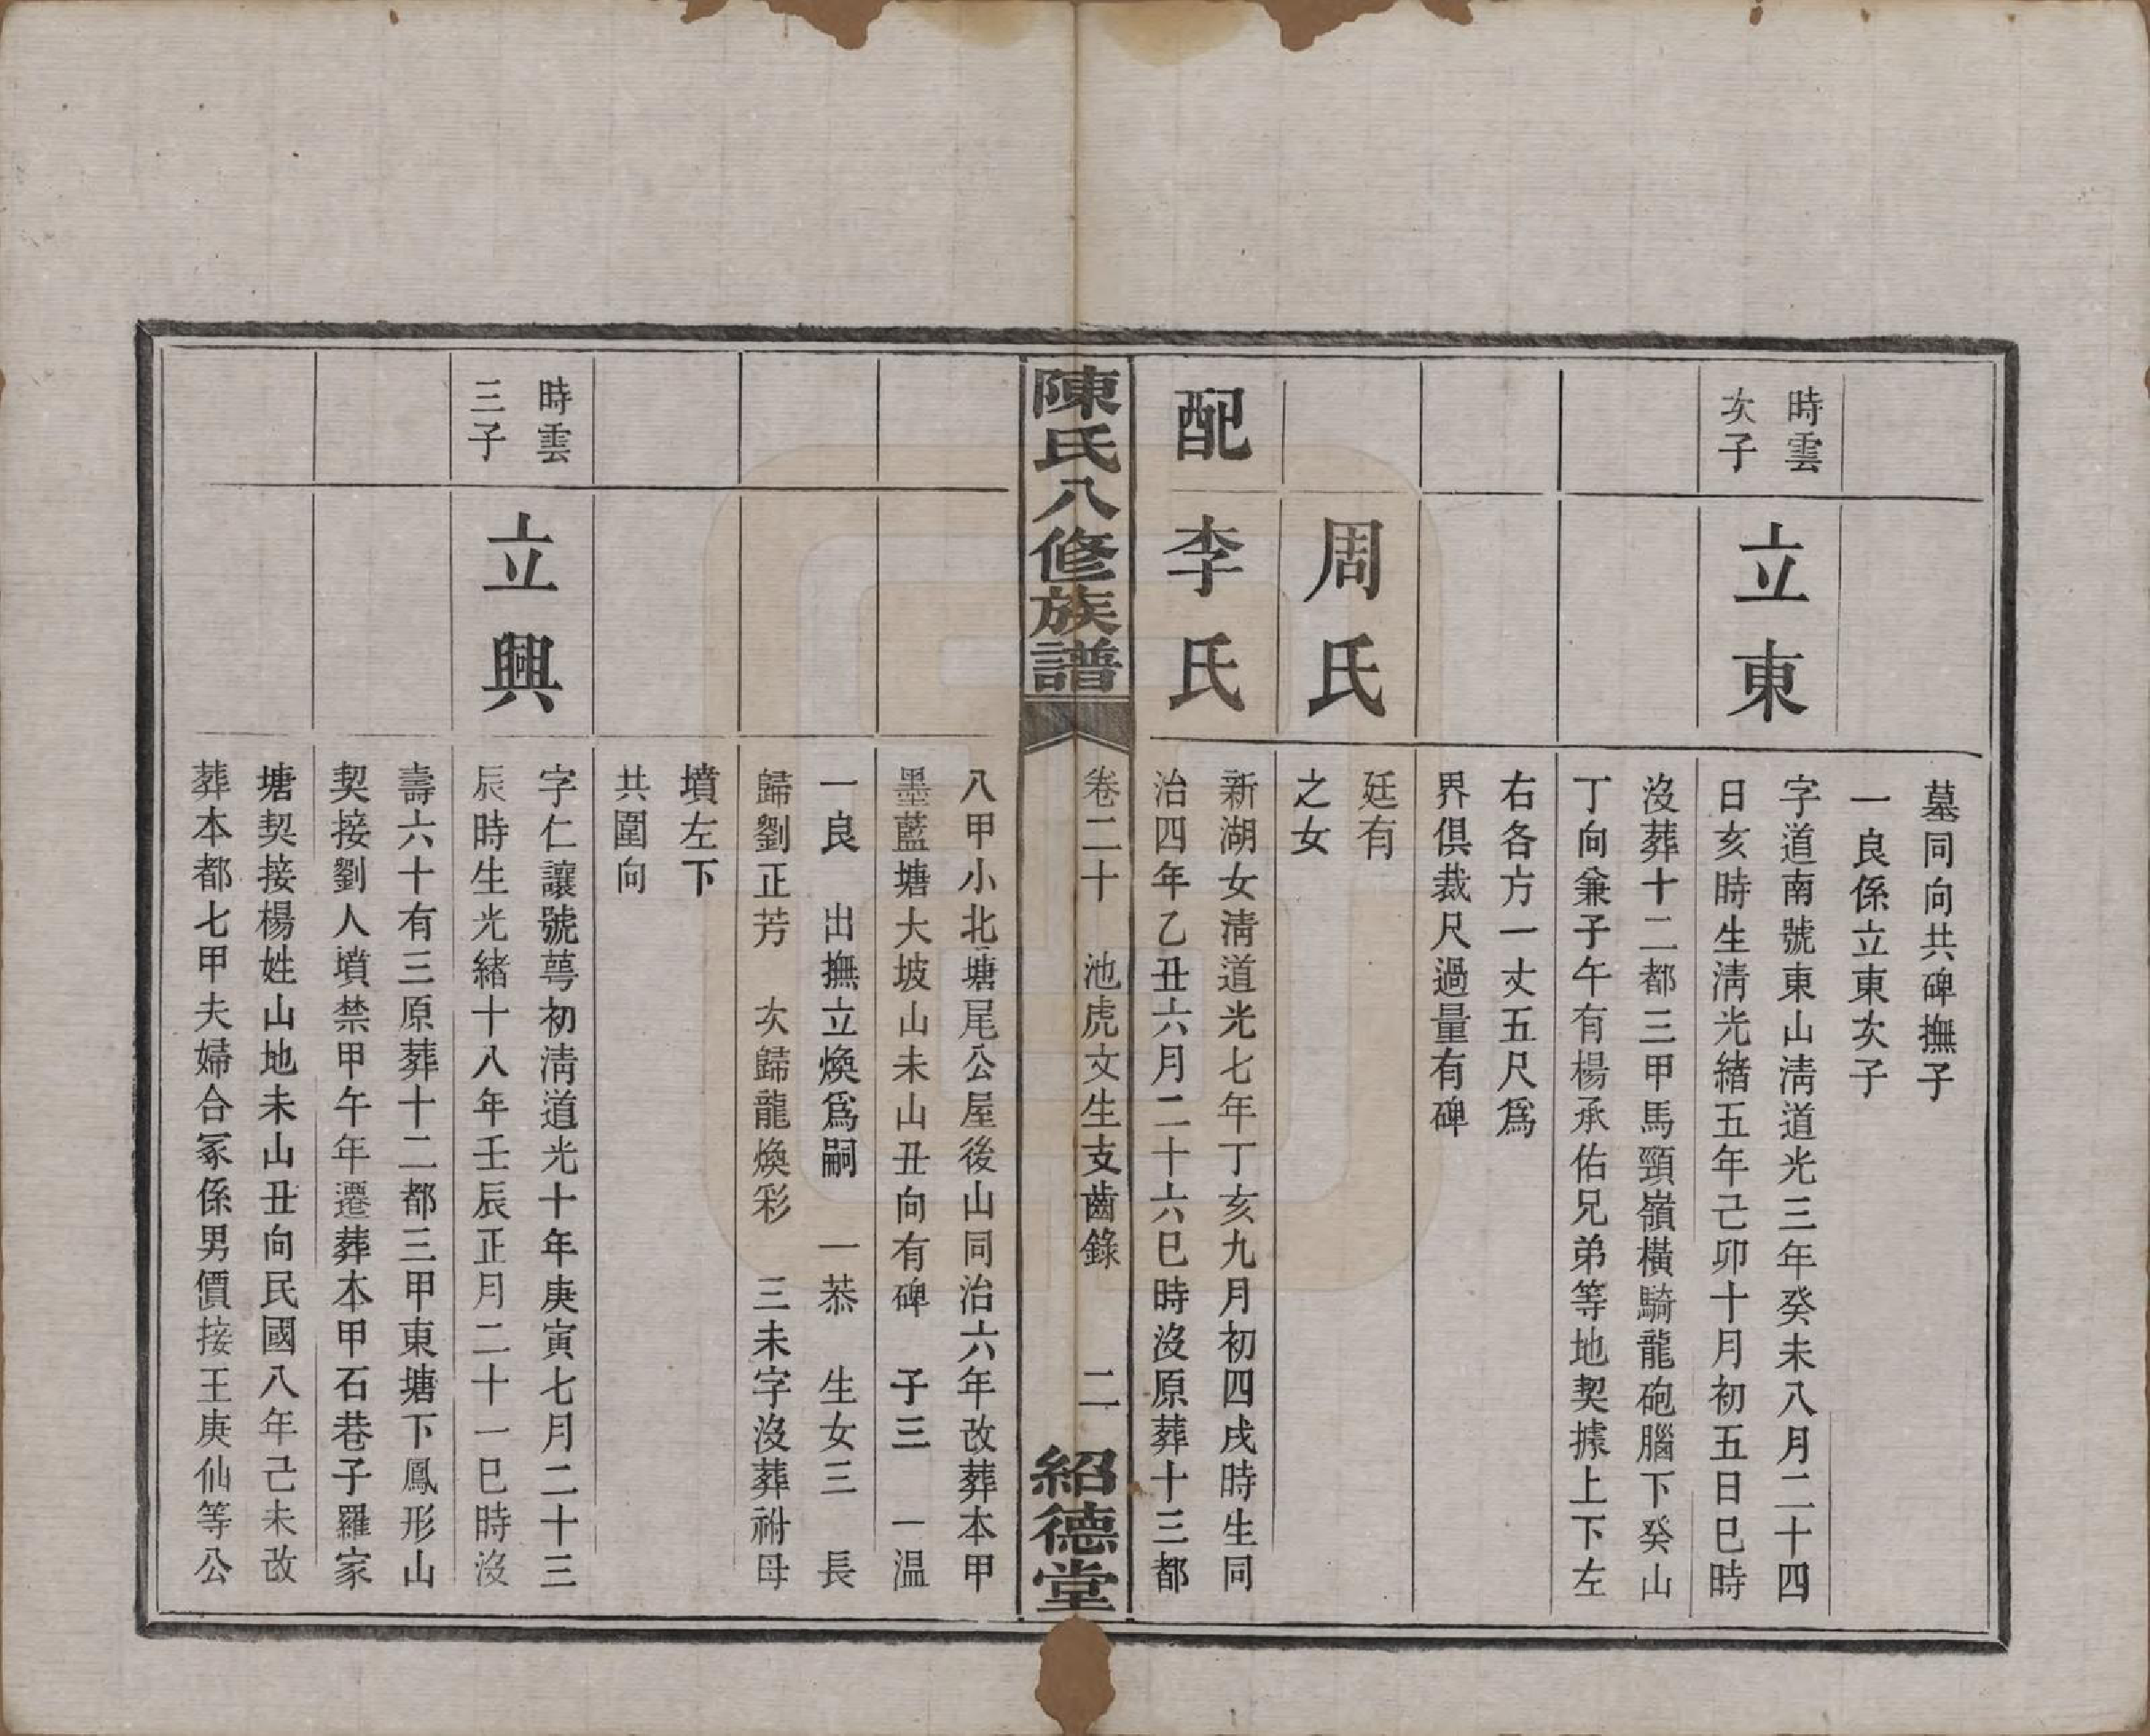 墓同向共碑撫子
一良係立東次子
時雲
次子
立東
字道南號東山淸道光三年癸未八月二十四
日亥時生淸光緒五年己卯十月初五日巳時
沒葬十二都三甲馬頸嶺橫騎龍砲腦下癸山
丁向兼子午有楊承佑兄弟等地契據上下左
右各方一丈五尺爲
界俱裁尺過量有碑
周氏
廷有
之女
配
李氏
新湖女淸道光七年丁亥九月初四戌時生同
治四年乙丑六月二十六巳時沒原葬十三都
陳氏八修族譜
卷二十 池虎文生支齒錄 二
紹德堂
八甲小北塘尾公屋後山同治六年改葬本甲
墨藍塘大坡山未山丑向有碑 子三 一温
一良 出撫立煥爲嗣 一恭 生女三 長
歸劉正芳 次歸龍煥彩 三未字沒葬祔母
墳左下
共圍向
時雲
三子
立興
字仁讓號萼初淸道光十年庚寅七月二十三
辰時生光緒十八年壬辰正月二十一巳時沒
壽六十有三原葬十二都三甲東塘下鳳形山
契接劉人墳禁甲午年遷葬本甲石巷子羅家
塘契接楊姓山地未山丑向民國八年己未改
葬本都七甲夫婦合冢係男價接王庚仙等公